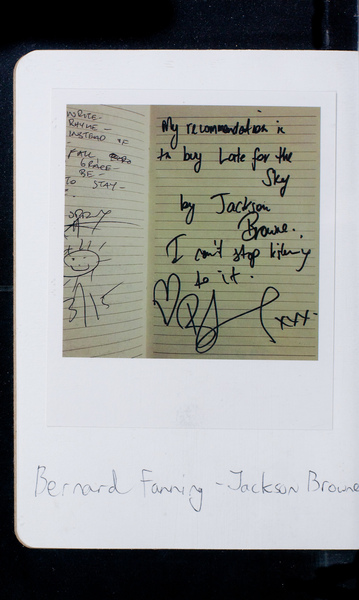 WRITE-
RHYME-
INSTEAD OF
FALL
GRACE-
BE-
TO STAY-
My recommendation is
to buy Late for the
Sky
by Jackson
Browne.
I can't stop
to it.
xxx-
3/15
Bernard Fanning - Jackson Browne